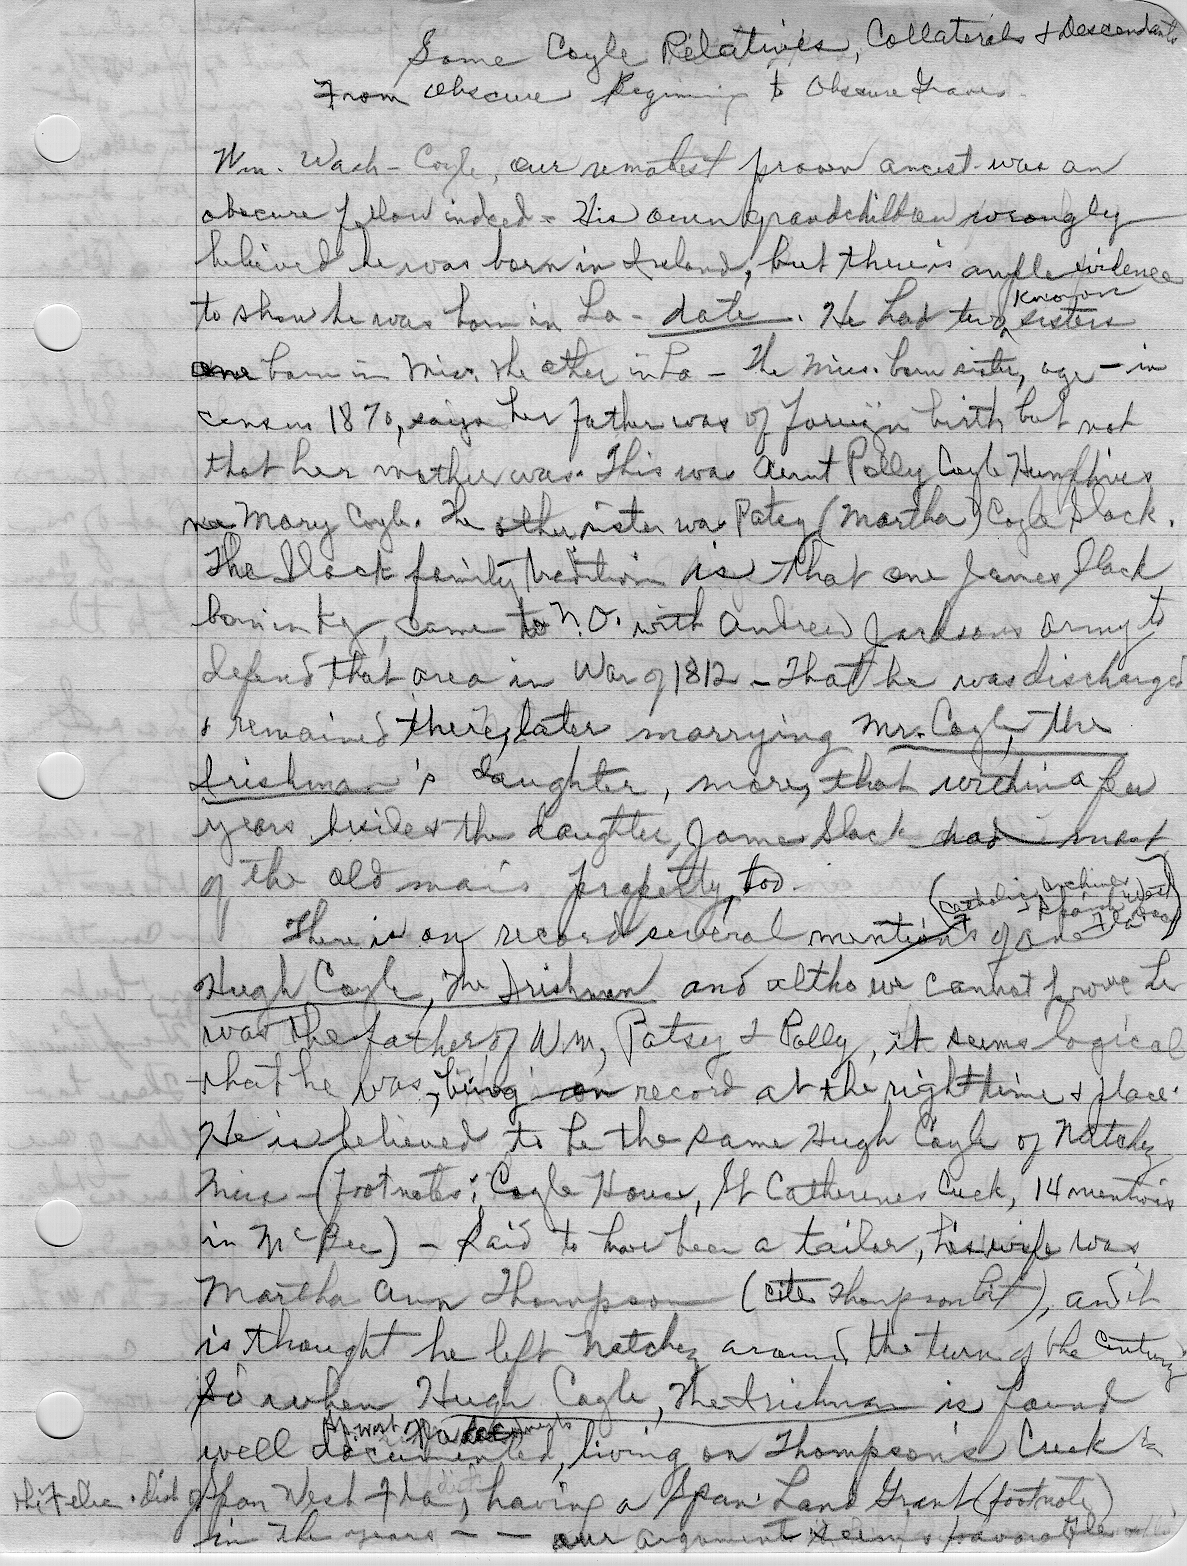 Some Coyle Relatives, Collaterals & Descendants
From Obscure Beginning to Obscure Graves.
Wm. Wash- Coyle, our remotest proven ancest. was an
obscure fellow indeed - His own grandchildren wrongly
believed he was born in Ireland, but there is ample evidence
to show he was born in La - date. He had two known sisters
one born in Miss. the other in La - The Miss. born sister, age - in
census 1870, says her father was of foreign birth but not
that her mother was. This was Aunt Polly Coyle Humphries
nee Mary Coyle. The other sister was Patsy (Martha) Coyle Slack.
The Slack family tradition is that one James Slack
born in Ky, came to N.O. with Andrew Jacksons army to
defend that area in War of 1812 - That he was discharged
& remained there, later marrying Mr. Coyle, the
Irishman's daughter, more, that within a few
years besides the daughter, James Slack had most
of the old man's property, too.
(Catholic archives & Spanish West Fla
There is on record several mentions of one
Hugh Coyle, The Irishman and altho we cannot prove he
was the father of Wm, Patsy & Polly, it seems logical
that he was, being on record at the right time & place.
He is believed to be the same Hugh Coyle of Natchez
Miss - (footnotes: Coyle House, St Catherines Creek, 14 mentions
in McBee) - Said to have been a tailor, his wife was
Martha Ann Thompson (cite Thompson ), and it
is thought he left Natchez around the turn of the Century
So when Hugh Coyle, The Irishman is found
Sp. West Fla documents
well documented, living on Thompson's Creek in
Span West Fla, having a Span. Land Grant (footnote)
in the years - - our argument seems favorable